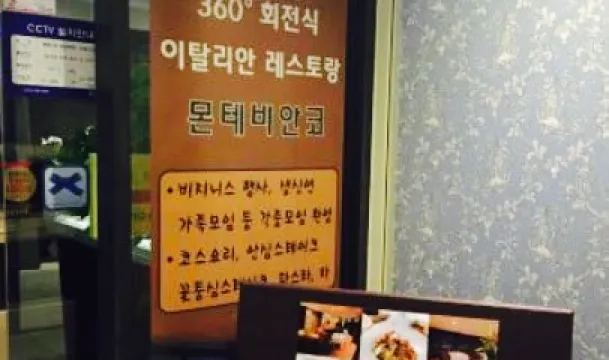 CCTV
360° 회전식
이탈리안 레스토랑
몬테비안코
• 비지니스 행사, 생신연
가족모임 등 각종모임 환영
• 코스요리, 안심스테이크
꽃등심스테이크, 파스타, 피